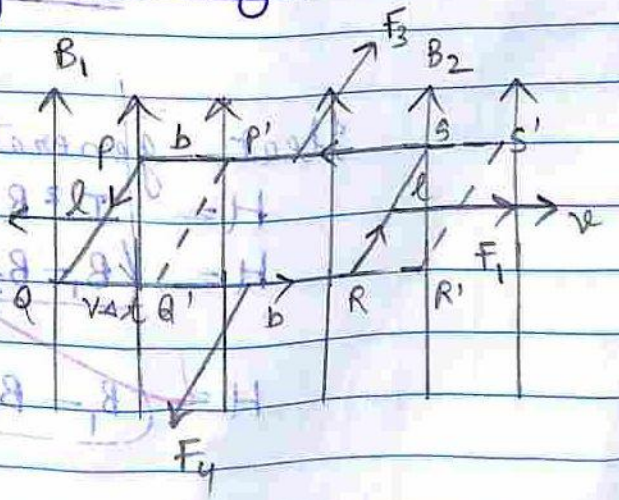 F3
B1 B2
P b P' S S'
l l v
F1
Q vΔt Q' b R R'
F4